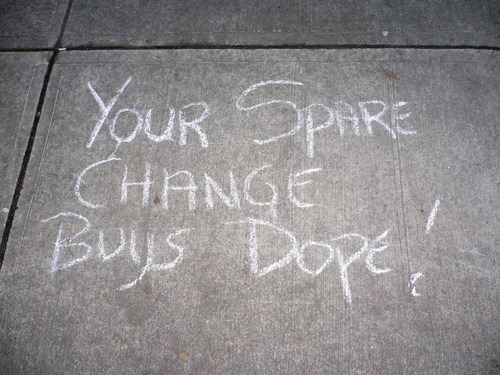 Your Spare
Change
Buys Dope!